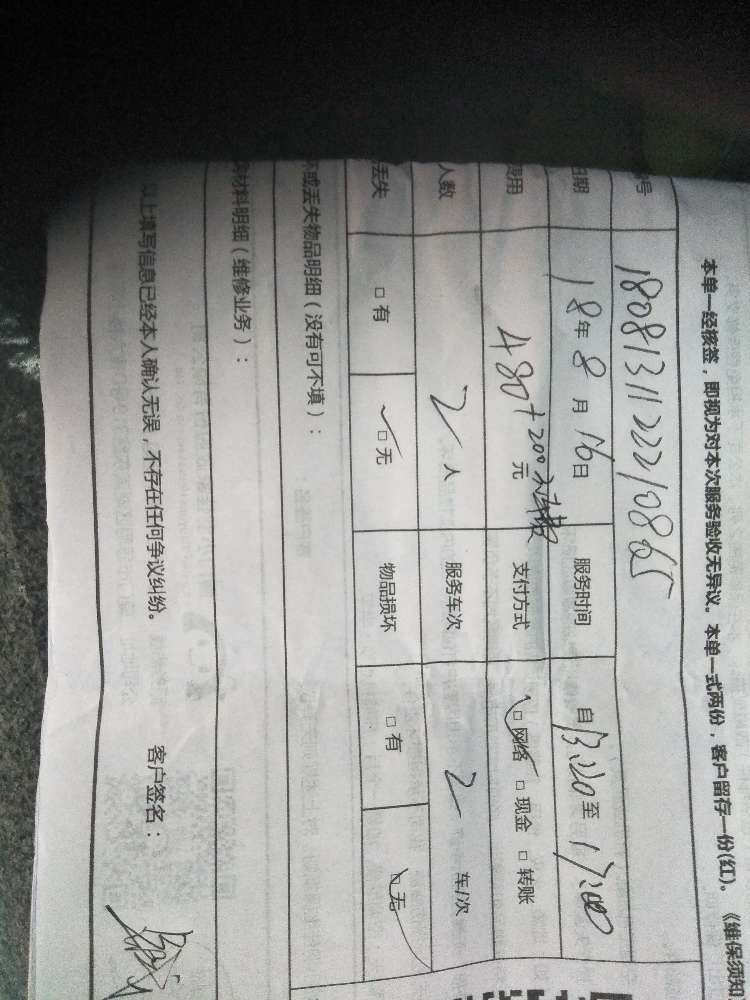 本单一经核签，即视为对本次服务验收无异议。本单一式两份，客户留存一份(红)。《维保须知
号 18081311222210865
日期 18年8月16日 服务时间 自13:20至17:00
费用 480+200 元 支付方式 □网络 □现金 □转账
人数 2人 服务车次 2 车/次
丢失 □有 □无 物品损坏 □有 □无
坏或丢失物品明细（没有可不填）：
材料明细（维修业务）：
以上填写信息已经本人确认无误，不存在任何争议纠纷。 客户签名：